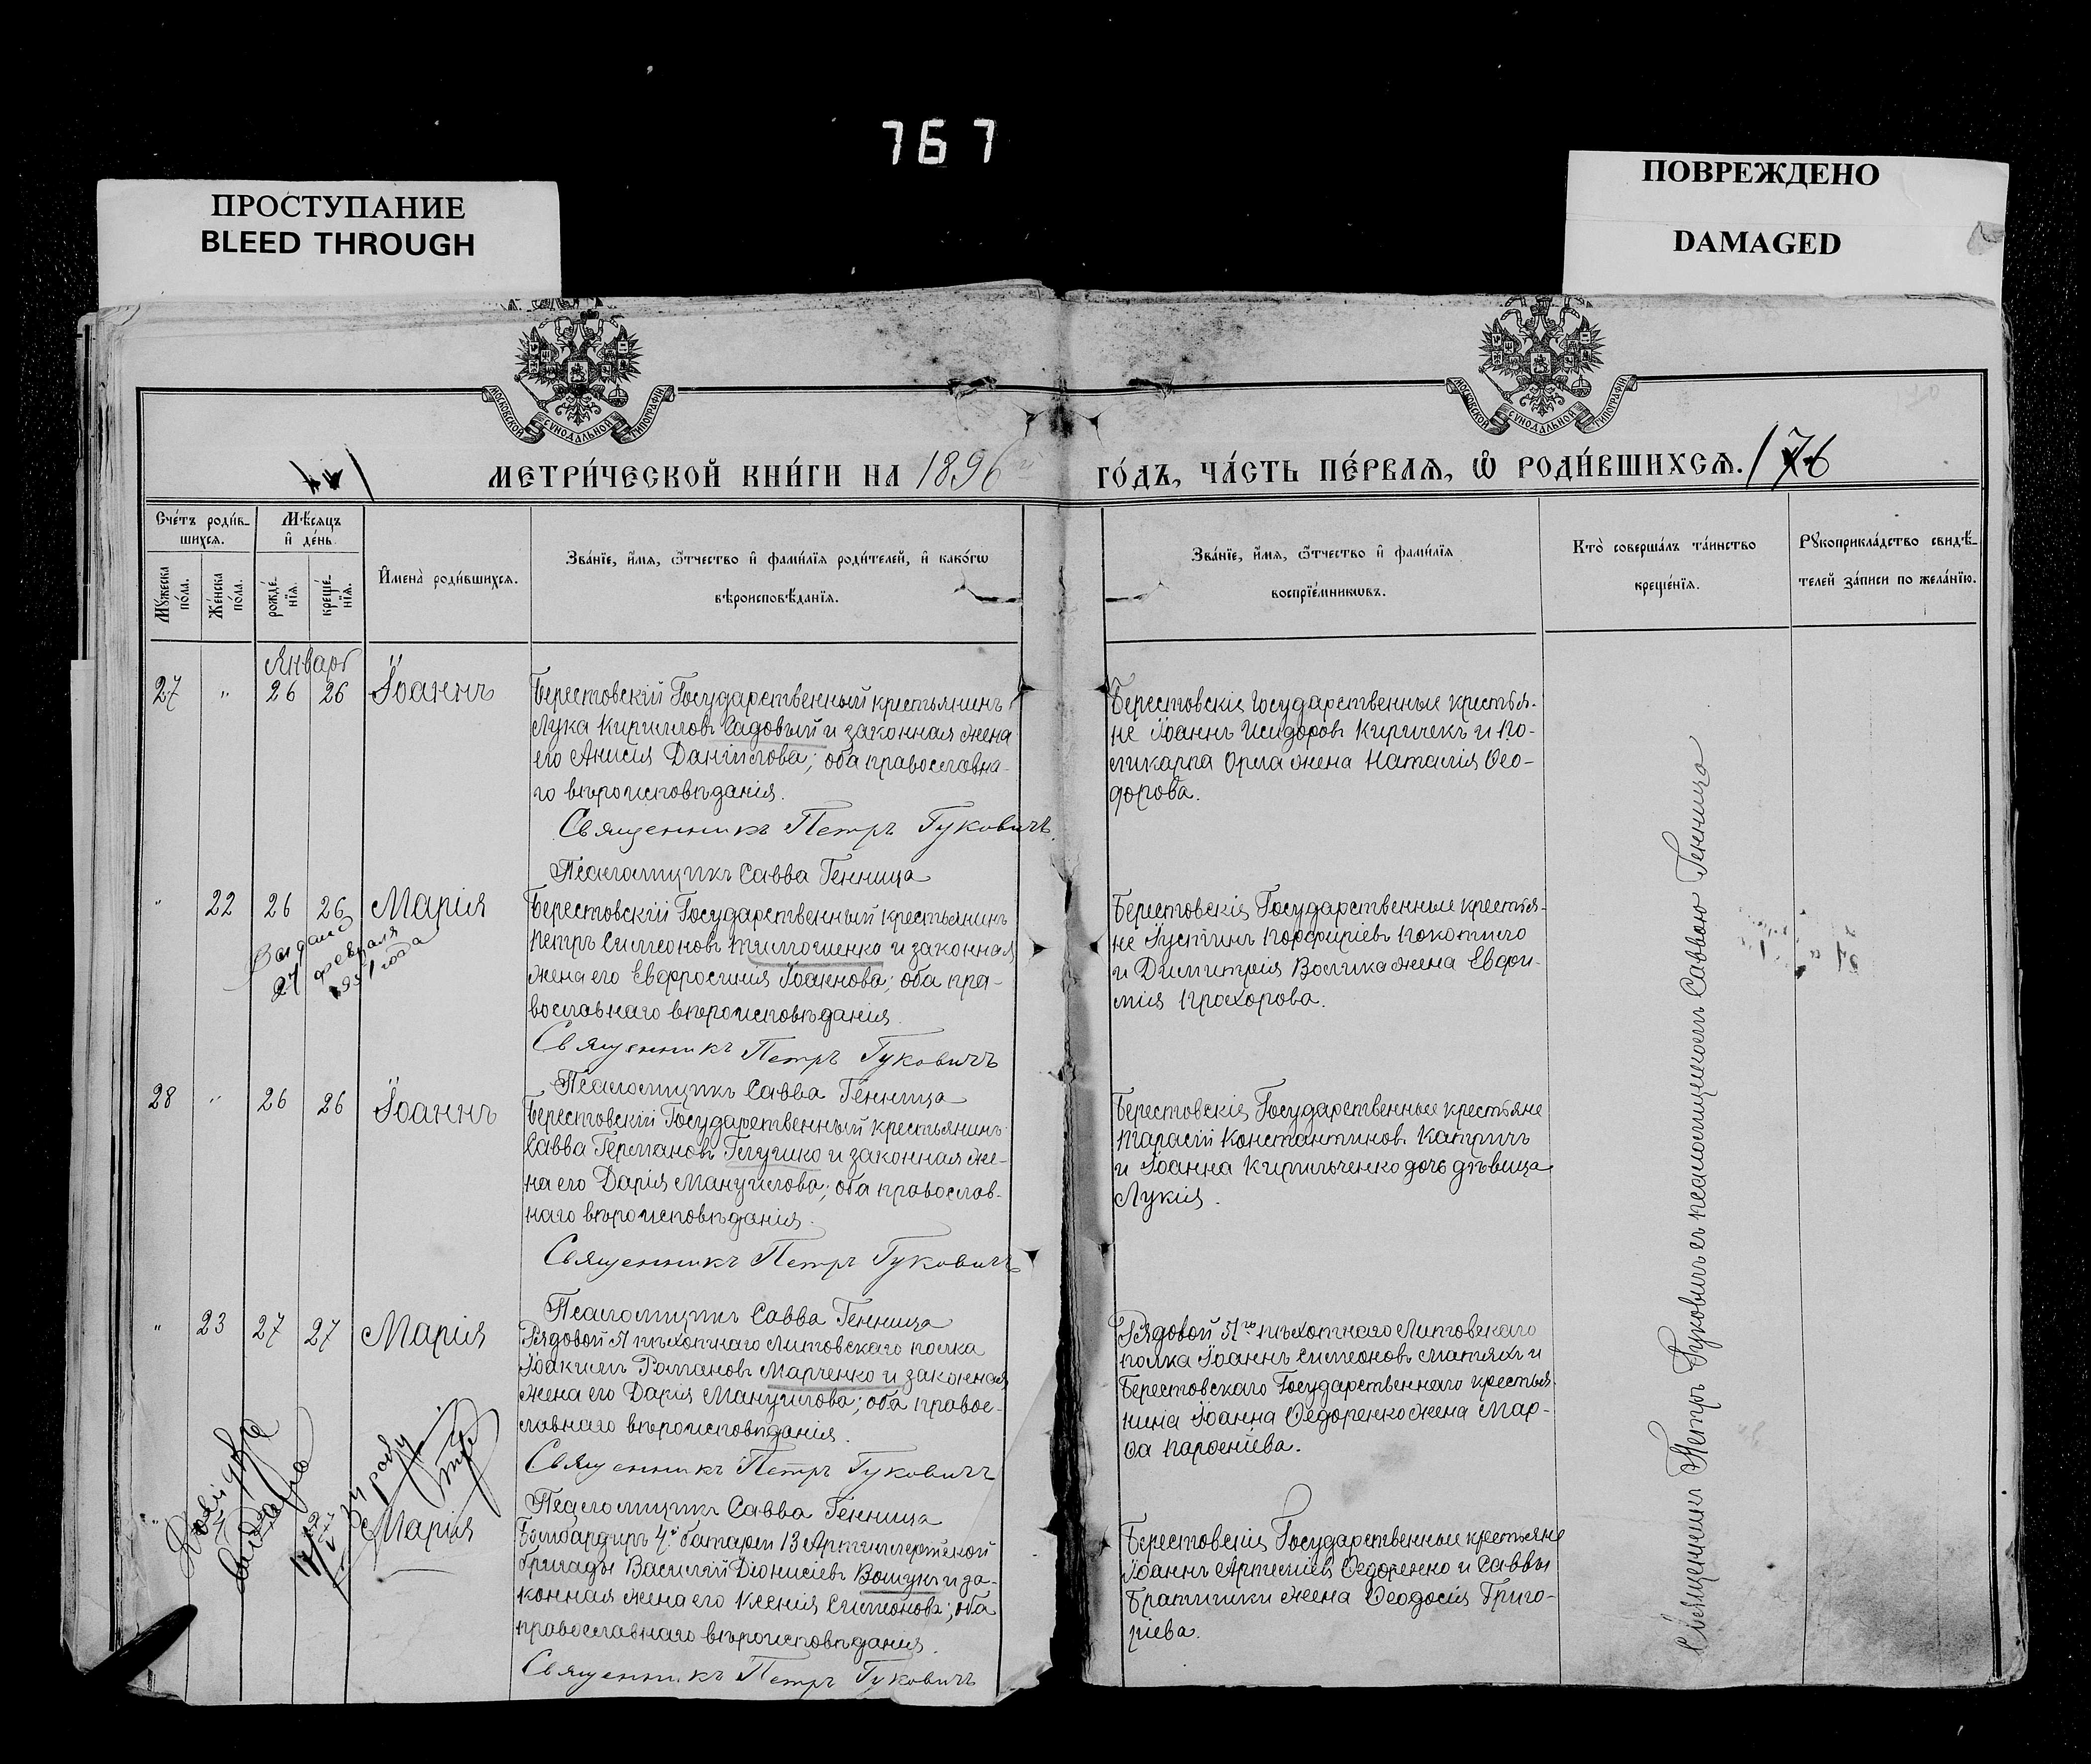 767
ПРОСТУПАНИЕ
BLEED THROUGH
ПОВРЕЖДЕНО
DAMAGED
МОСКОВСКОЙ СѴНОДАЛЬНОЙ ТИПОГРАФІИ
МОСКОВСКОЙ СѴНОДАЛЬНОЙ ТИПОГРАФІИ
МЕТРИ́ЧЕСКОЙ КНИ́ГИ НА 1896 й
ГО́ДЪ, ЧА́СТЬ ПЕ́РВАѦ, Ѡ҆ РОДИ́ВШИХСѦ. 176
Сче́тъ роди́в-
шихсѧ.
Мꙋ́жеска по́ла.
Же́нска по́ла.
Мѣ́сѧцъ
и҆ де́нь.
рожде́-
нїѧ.
креще́-
нїѧ.
И҆мена̀ роди́вшихсѧ.
Зва́нїе, и҆́мѧ, ѻ҆́тчество и҆ фами́лїѧ роди́телей, и҆ како́гѡ
вѣроисповѣ́данїѧ.
Зва́нїе, и҆́мѧ, ѻ҆́тчество и҆ фами́лїѧ
воспрїе́мникѡвъ.
Кто̀ соверша́лъ та́инство
креще́нїѧ.
Рꙋкоприкла́дство свидѣ́-
телей за́писи по жела́нїю.
Январь
27 " 26 26 Іоаннъ
Берестовскій Государственный крестьянинъ
Лука Кирилловъ Садовый и законная жена
его Анисія Даніилова; оба православна-
го вѣроисповѣданія.
Священникъ Петръ Гуковичъ
Псаломщикъ Савва Генница
Берестовскіе Государственные крестья-
не Іоаннъ Исидоровъ Киричекъ и По-
ликарпа Орла жена Наталія Ѳео-
дорова.
" 22 26 26 Марія
Выдано
27 февраля
1951 года
Берестовскій Государственный крестьянинъ
Петръ Симеоновъ Тимошенко и законная
жена его Евфросинія Іоаннова; оба пра-
вославнаго вѣроисповѣданія.
Священникъ Петръ Гуковичъ
Псаломщикъ Савва Генница
Берестовскіе Государственные крестья-
не Іустинъ Порфиріевъ Покотило
и Димитрія Волика жена Евфи-
мія Прохорова.
28 " 26 26 Іоаннъ
Берестовскій Государственный крестьянинъ
Савва Германовъ Глушко и законная же-
на его Дарія Мануилова; оба православ-
наго вѣроисповѣданія.
Священникъ Петръ Гуковичъ
Псаломщикъ Савва Генница
Берестовскіе Государственные крестьяне
Тарасій Константиновъ Катричъ
и Іоанна Кирильченко дочь дѣвица
Лукія.
" 23 27 27 Марія
Рядовой 51 пѣхотнаго Литовскаго полка
Іоакимъ Романовъ Марченко и законная
жена его Дарія Мануилова; оба правос-
лавнаго вѣроисповѣданія.
Священникъ Петръ Гуковичъ
Псаломщикъ Савва Генница
Рядовой 51го пѣхотнаго Литовскаго
полка Іоаннъ Симеоновъ Матяхъ и
Берестовскаго Государственнаго крестья-
нина Іоанна Ѳедоренко жена Мар-
ѳа Парѳеніева.
" Марія
Бомбардиръ 4й батареи 13 Артиллерійской
бригады Василій Діонисіевъ Вошунъ и за-
конная жена его Ксенія Симеонова; оба
православнаго вѣроисповѣданія.
Священникъ Петръ Гуковичъ
Берестовскіе Государственные крестьяне
Іоаннъ Артеміевъ Ѳедоренко и Саввы
Братишки жена Ѳеодосія Григо-
ріева.
Священникъ Петръ Гуковичъ съ псаломщикомъ Саввою Генница